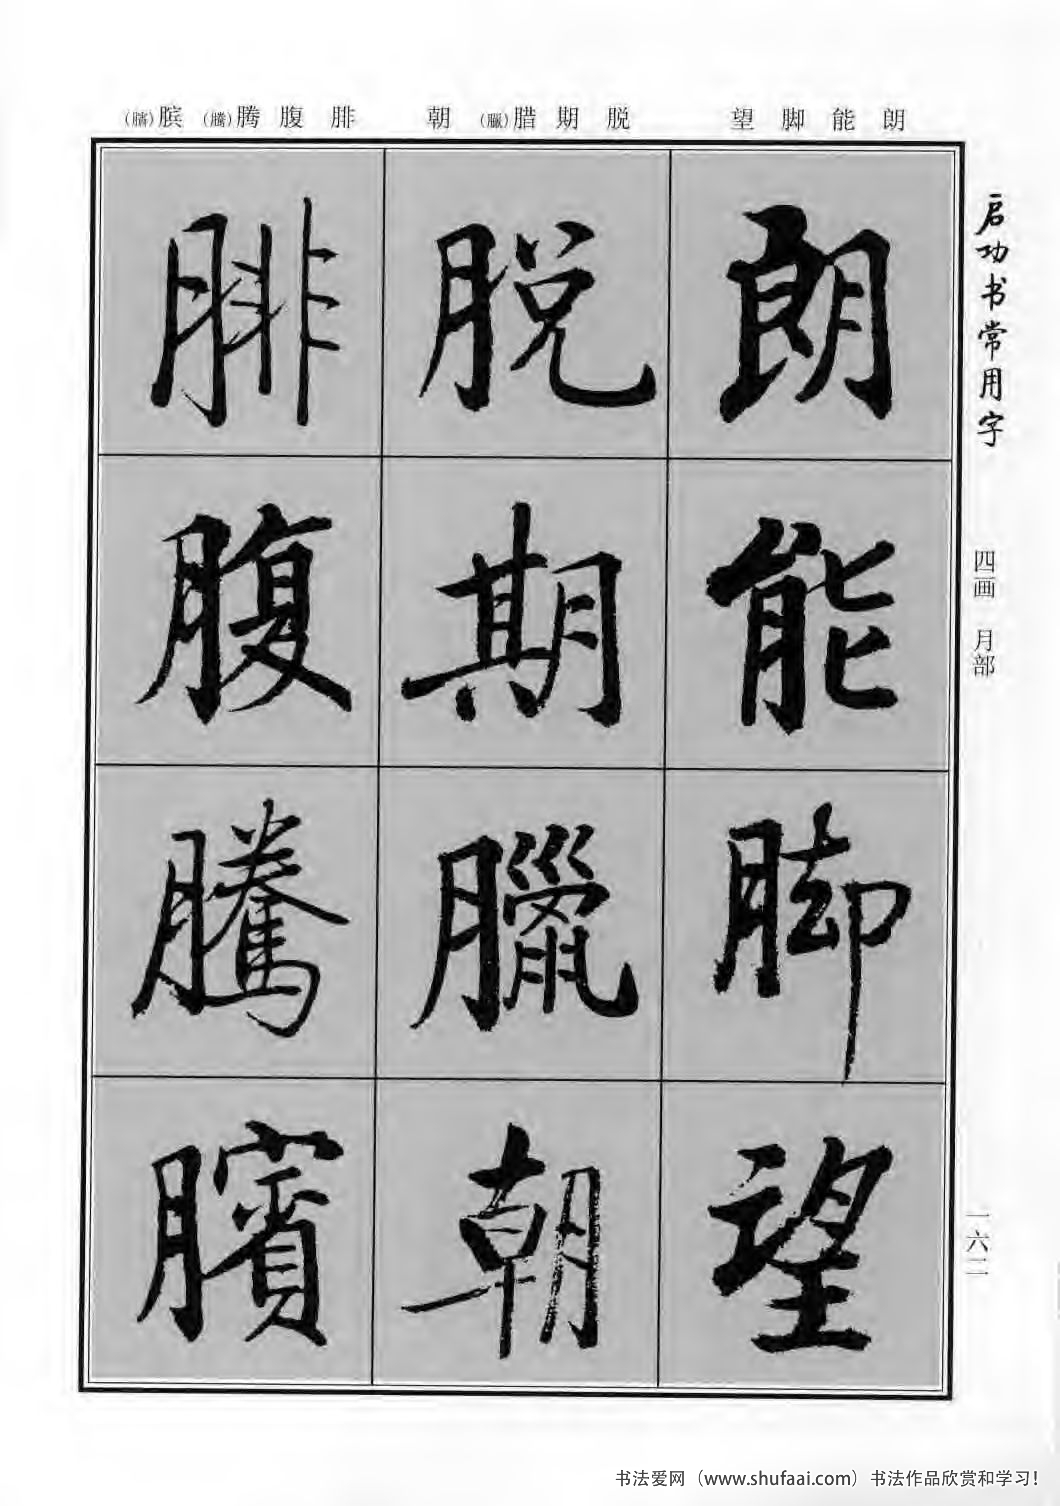 朗能脚望 脱期腊(臘)朝 腓腹腾(騰)膑(臏)
朗
能
脚
望
脱
期
臘
朝
腓
腹
騰
臏
启功书常用字
四画 月部
一六二
书法爱网（www.shufaai.com）书法作品欣赏和学习！